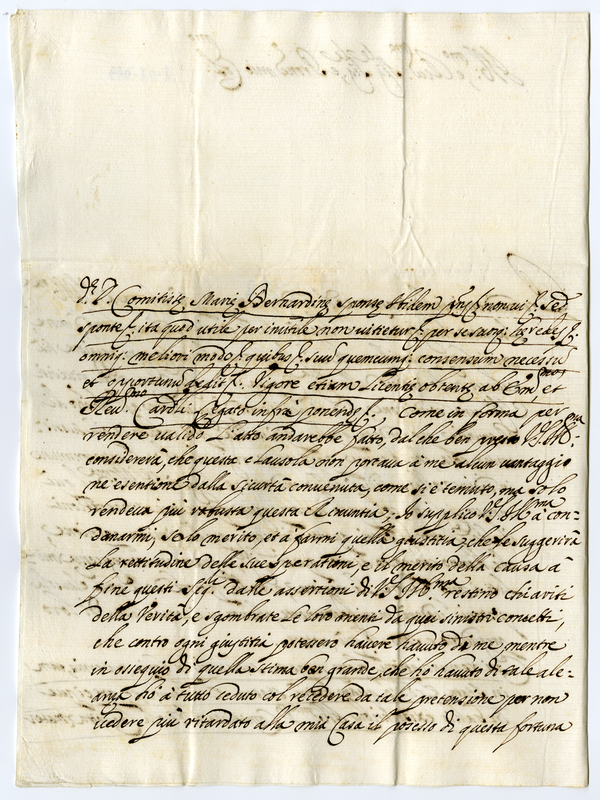 D. Comitisse Marie Bernardine sponse
sponte &. ita quod utile per inutile non vitietur &. per se suosq; heredes &.
omniq; meliori modo &. quibus &. suum quemcunq; consensum
et opportunum dedit &. Vigore etiam Licentie obtente ab Em.mo et
Rev.mo Card. Legato infra ponende &. Come in forma per
rendere valido L'atto andarebbe fatto, dal che ben presto V.S. Ill.ma
considererà, che questa clausola non portava à me alcun vantaggio
ne esentione dalla sicurtà convenuta, come si è temuto, ma solo
rendeva più robusta questa Io supplico V.S. Ill.ma à con-
danarmi, se lo merito, et à farmi quella giustitia, che le suggerirà
La rettitudine delle sue operationi, e il merito della causa à
fine questi Sig.ri dalle assertioni di V.S. Ill.ma restino chiariti
della Verità, e sgombrate Le loro menti da quei sinistri concetti,
che contro ogni giustitia potessero havere havuto di me mentre
in ossequio di quella stima ben grande, che hò havuto di tale ale-
anza hò à tutto ceduto col recedere da tale pretensione per non
vedere più ritardato alla mia Casa il possesso di questa fortuna